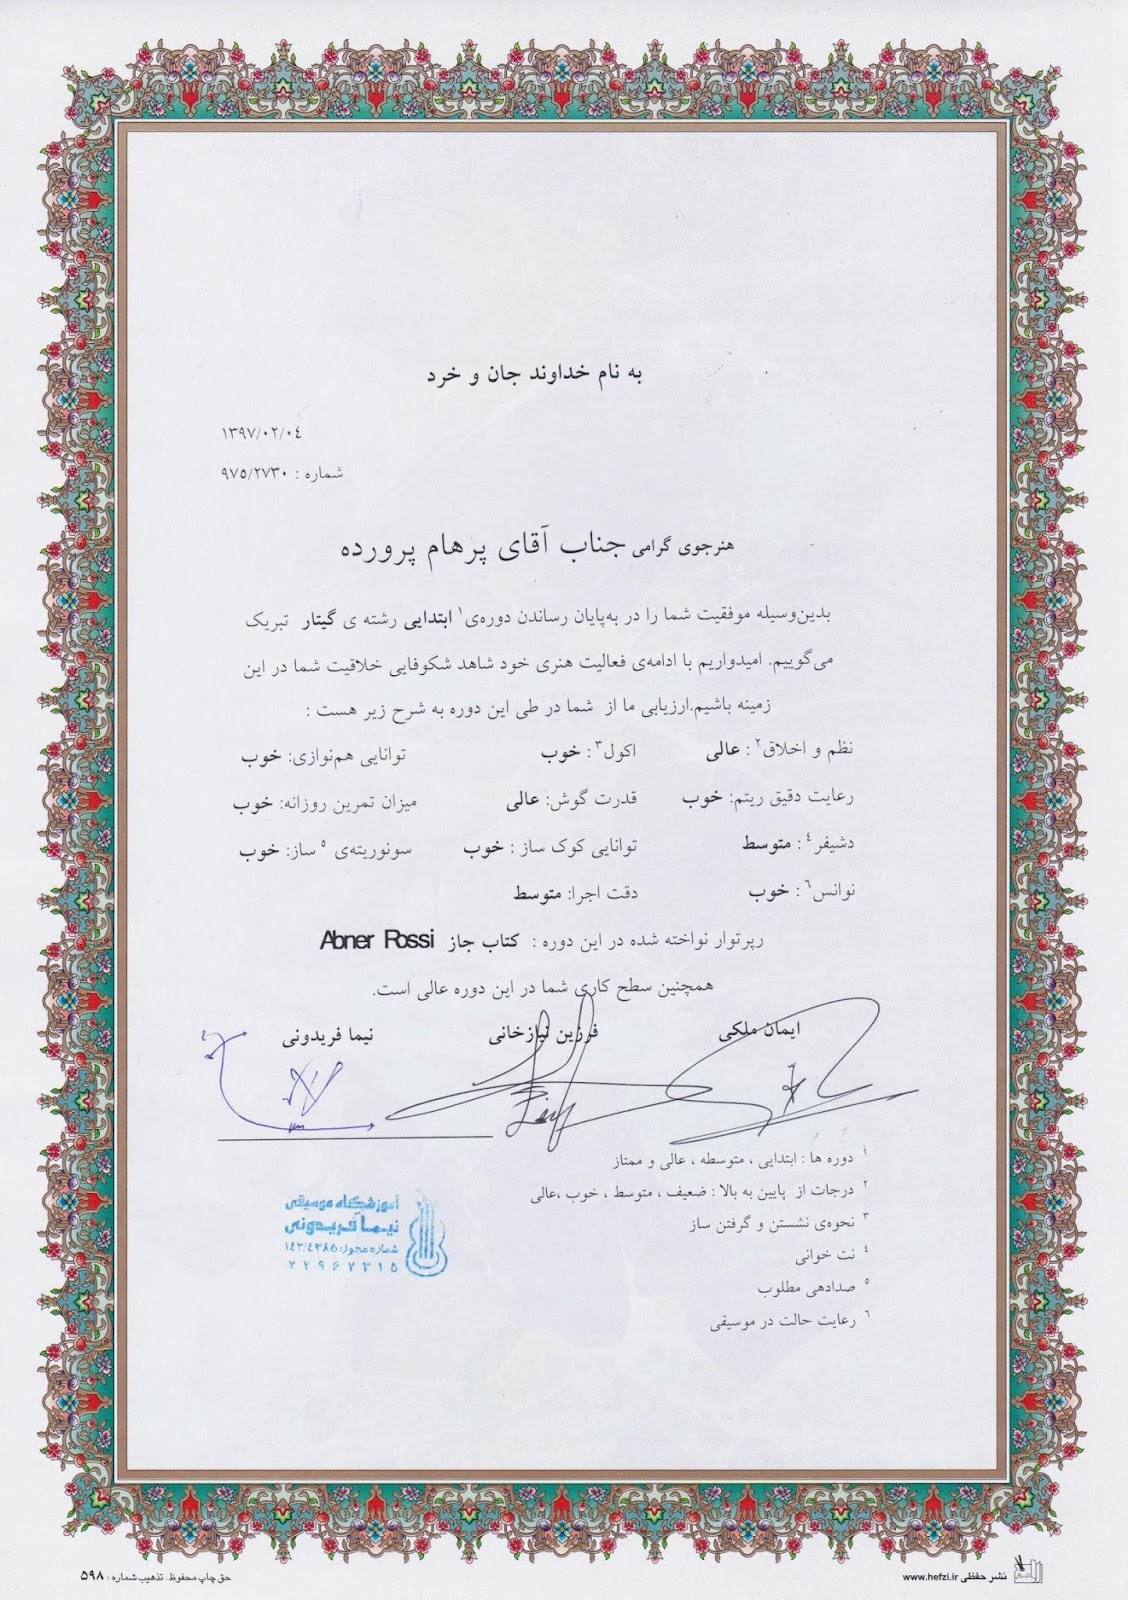 به نام خداوند جان و خرد
۱۳۹۷/۰۲/۰٤
شماره : ۹۷۵/۲۷۳۰
هنرجوی گرامی جناب آقای پرهام پرورده
بدین‌وسیله موفقیت شما را در به‌پایان رساندن دوره‌ی۱ ابتدایی رشته ی گیتار تبریک
می‌گوییم. امیدواریم با ادامه‌ی فعالیت هنری خود شاهد شکوفایی خلاقیت شما در این
زمینه باشیم.ارزیابی ما از شما در طی این دوره به شرح زیر هست :
نظم و اخلاق۲ : عالی اکول۳ : خوب توانایی هم‌نوازی: خوب
رعایت دقیق ریتم: خوب قدرت گوش: عالی میزان تمرین روزانه: خوب
دشیفر٤ : متوسط توانایی کوک ساز : خوب سونوریته‌ی ۵ ساز: خوب
نوانس٦ : خوب دقت اجرا: متوسط
رپرتوار نواخته شده در این دوره : کتاب جاز Abner Rossi
همچنین سطح کاری شما در این دوره عالی است.
ایمان ملکی فرزین نیازخانی نیما فریدونی
۱ دوره ها : ابتدایی ، متوسطه ، عالی و ممتاز
۲ درجات از پایین به بالا : ضعیف ، متوسط ، خوب ،عالی
۳ نحوه‌ی نشستن و گرفتن ساز
٤ نت خوانی
۵ صدادهی مطلوب
٦ رعایت حالت در موسیقی
آموزشگاه موسیقی
نیما فریدونی
شماره مجوز: ۱۴۲/۴۳۸۵
۲۲۹۶۲۳۱۵
نشر حفظی www.hefzi.ir
حق چاپ محفوظ. تذهیب شماره : ۵۹۸